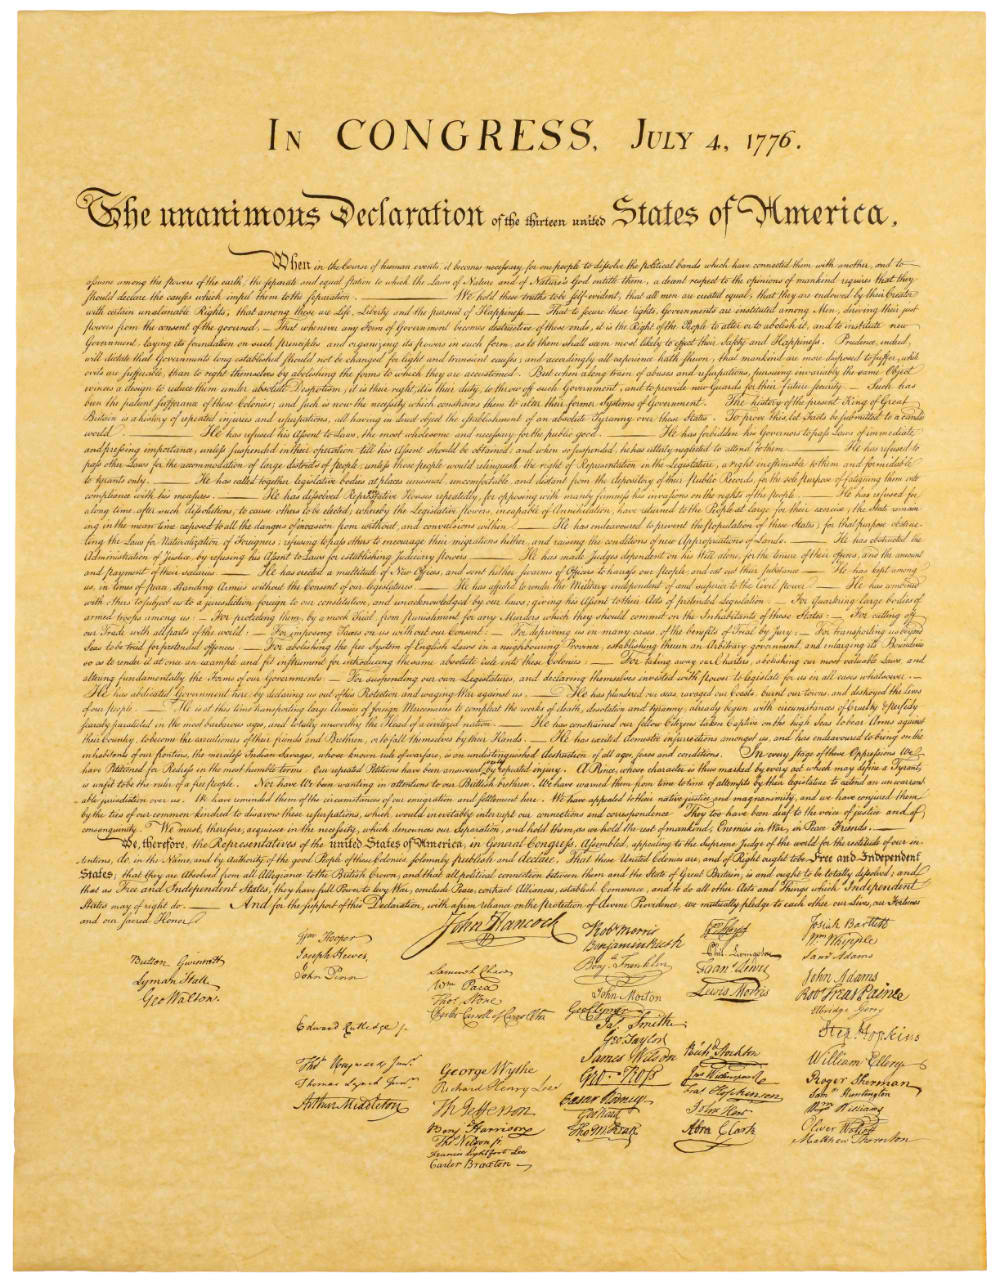 IN CONGRESS, JULY 4, 1776.
The unanimous Declaration of the thirteen united States of America,
When in the Course of human events, it becomes necessary for one people to dissolve the political bands which have connected them with another, and to
assume among the powers of the earth, the separate and equal station to which the Laws of Nature and of Nature's God entitle them, a decent respect to the opinions of mankind requires that they
should declare the causes which impel them to the separation. — We hold these truths to be self-evident, that all men are created equal, that they are endowed by their Creator
with certain unalienable Rights, that among these are Life, Liberty and the pursuit of Happiness. — That to secure these rights, Governments are instituted among Men, deriving their just
powers from the consent of the governed, — That whenever any Form of Government becomes destructive of these ends, it is the Right of the People to alter or to abolish it, and to institute new
Government, laying its foundation on such principles and organizing its powers in such form, as to them shall seem most likely to effect their Safety and Happiness. Prudence, indeed,
will dictate that Governments long established should not be changed for light and transient causes; and accordingly all experience hath shewn, that mankind are more disposed to suffer, while
evils are sufferable, than to right themselves by abolishing the forms to which they are accustomed. But when a long train of abuses and usurpations, pursuing invariably the same Object
evinces a design to reduce them under absolute Despotism, it is their right, it is their duty, to throw off such Government, and to provide new Guards for their future security. — Such has
been the patient sufferance of these Colonies; and such is now the necessity which constrains them to alter their former Systems of Government. The history of the present King of Great
Britain is a history of repeated injuries and usurpations, all having in direct object the establishment of an absolute Tyranny over these States. To prove this, let Facts be submitted to a candid
world. — He has refused his Assent to Laws, the most wholesome and necessary for the public good. — He has forbidden his Governors to pass Laws of immediate
and pressing importance, unless suspended in their operation till his Assent should be obtained; and when so suspended, he has utterly neglected to attend to them. — He has refused to
pass other Laws for the accommodation of large districts of people, unless those people would relinquish the right of Representation in the Legislature, a right inestimable to them and formidable
to tyrants only. — He has called together legislative bodies at places unusual, uncomfortable, and distant from the depository of their Public Records, for the sole purpose of fatiguing them into
compliance with his measures. — He has dissolved Representative Houses repeatedly, for opposing with manly firmness his invasions on the rights of the people. — He has refused for
a long time, after such dissolutions, to cause others to be elected; whereby the Legislative powers, incapable of Annihilation, have returned to the People at large for their exercise; the State remain-
ing in the mean time exposed to all the dangers of invasion from without, and convulsions within. — He has endeavoured to prevent the population of these States; for that purpose obstruc-
ting the Laws for Naturalization of Foreigners; refusing to pass others to encourage their migrations hither, and raising the conditions of new Appropriations of Lands. — He has obstructed the
Administration of Justice, by refusing his Assent to Laws for establishing Judiciary powers. — He has made Judges dependent on his Will alone, for the tenure of their offices, and the amount
and payment of their salaries. — He has erected a multitude of New Offices, and sent hither swarms of Officers to harrass our people, and eat out their substance. — He has kept among
us, in times of peace, Standing Armies without the Consent of our legislatures. — He has affected to render the Military independent of and superior to the Civil power. — He has combined
with others to subject us to a jurisdiction foreign to our constitution, and unacknowledged by our laws; giving his Assent to their Acts of pretended Legislation: — For Quartering large bodies of
armed troops among us: — For protecting them, by a mock Trial, from punishment for any Murders which they should commit on the Inhabitants of these States: — For cutting off
our Trade with all parts of the world: — For imposing Taxes on us without our Consent: — For depriving us in many cases, of the benefits of Trial by Jury: — For transporting us beyond
Seas to be tried for pretended offences: — For abolishing the free System of English Laws in a neighbouring Province, establishing therein an Arbitrary government, and enlarging its Boundaries
so as to render it at once an example and fit instrument for introducing the same absolute rule into these Colonies: — For taking away our Charters, abolishing our most valuable Laws, and
altering fundamentally the Forms of our Governments: — For suspending our own Legislatures, and declaring themselves invested with power to legislate for us in all cases whatsoever. —
He has abdicated Government here, by declaring us out of his Protection and waging War against us. — He has plundered our seas, ravaged our Coasts, burnt our towns, and destroyed the lives
of our people. — He is at this time transporting large Armies of foreign Mercenaries to compleat the works of death, desolation and tyranny, already begun with circumstances of Cruelty & perfidy
scarcely paralleled in the most barbarous ages, and totally unworthy the Head of a civilized nation. — He has constrained our fellow Citizens taken Captive on the high Seas to bear Arms against
their Country, to become the executioners of their friends and Brethren, or to fall themselves by their Hands. — He has excited domestic insurrections amongst us, and has endeavoured to bring on the
inhabitants of our frontiers, the merciless Indian Savages, whose known rule of warfare, is an undistinguished destruction of all ages, sexes and conditions. In every stage of these Oppressions We
have Petitioned for Redress in the most humble terms: Our repeated Petitions have been answered only by repeated injury. A Prince, whose character is thus marked by every act which may define a Tyrant,
is unfit to be the ruler of a free people. Nor have We been wanting in attentions to our Brittish brethren. We have warned them from time to time of attempts by their legislature to extend an unwarrant-
able jurisdiction over us. We have reminded them of the circumstances of our emigration and settlement here. We have appealed to their native justice and magnanimity, and we have conjured them
by the ties of our common kindred to disavow these usurpations, which, would inevitably interrupt our connections and correspondence. They too have been deaf to the voice of justice and of
consanguinity. We must, therefore, acquiesce in the necessity, which denounces our Separation, and hold them, as we hold the rest of mankind, Enemies in War, in Peace Friends. —
We, therefore, the Representatives of the united States of America, in General Congress, Assembled, appealing to the Supreme Judge of the world for the rectitude of our in-
tentions, do, in the Name, and by Authority of the good People of these Colonies, solemnly publish and declare, That these United Colonies are, and of Right ought to be Free and Independent
States; that they are Absolved from all Allegiance to the British Crown, and that all political connection between them and the State of Great Britain, is and ought to be totally dissolved; and
that as Free and Independent States, they have full Power to levy War, conclude Peace, contract Alliances, establish Commerce, and to do all other Acts and Things which Independent
States may of right do. — And for the support of this Declaration, with a firm reliance on the protection of divine Providence, we mutually pledge to each other our Lives, our Fortunes
and our sacred Honor.
Button Gwinnett
Lyman Hall
Geo Walton.
Wm Hooper
Joseph Hewes,
John Penn
Edward Rutledge /.
Thos Heyward Junr.
Thomas Lynch Junr.
Arthur Middleton
John Hancock
Samuel Chase
Wm Paca
Thos Stone
Charles Carroll of Carrollton
George Wythe
Richard Henry Lee
Th Jefferson
Benj Harrison
Thos Nelson jr.
Francis Lightfoot Lee
Carter Braxton
Robt Morris
Benjamin Rush
Benj. Franklin
John Morton
Geo Clymer
Jas. Smith.
Geo. Taylor
James Wilson
Geo. Ross
Caesar Rodney
Geo Read
Tho M:Kean
Wm Floyd
Phil. Livingston
Frans. Lewis
Lewis Morris
Richd. Stockton
Jno Witherspoon
Fras. Hopkinson
John Hart
Abra Clark
Josiah Bartlett
Wm. Whipple
Saml Adams
John Adams
Robt Treat Paine
Elbridge Gerry
Step. Hopkins
William Ellery
Roger Sherman
Saml Huntington
Wm. Williams
Oliver Wolcott
Matthew Thornton